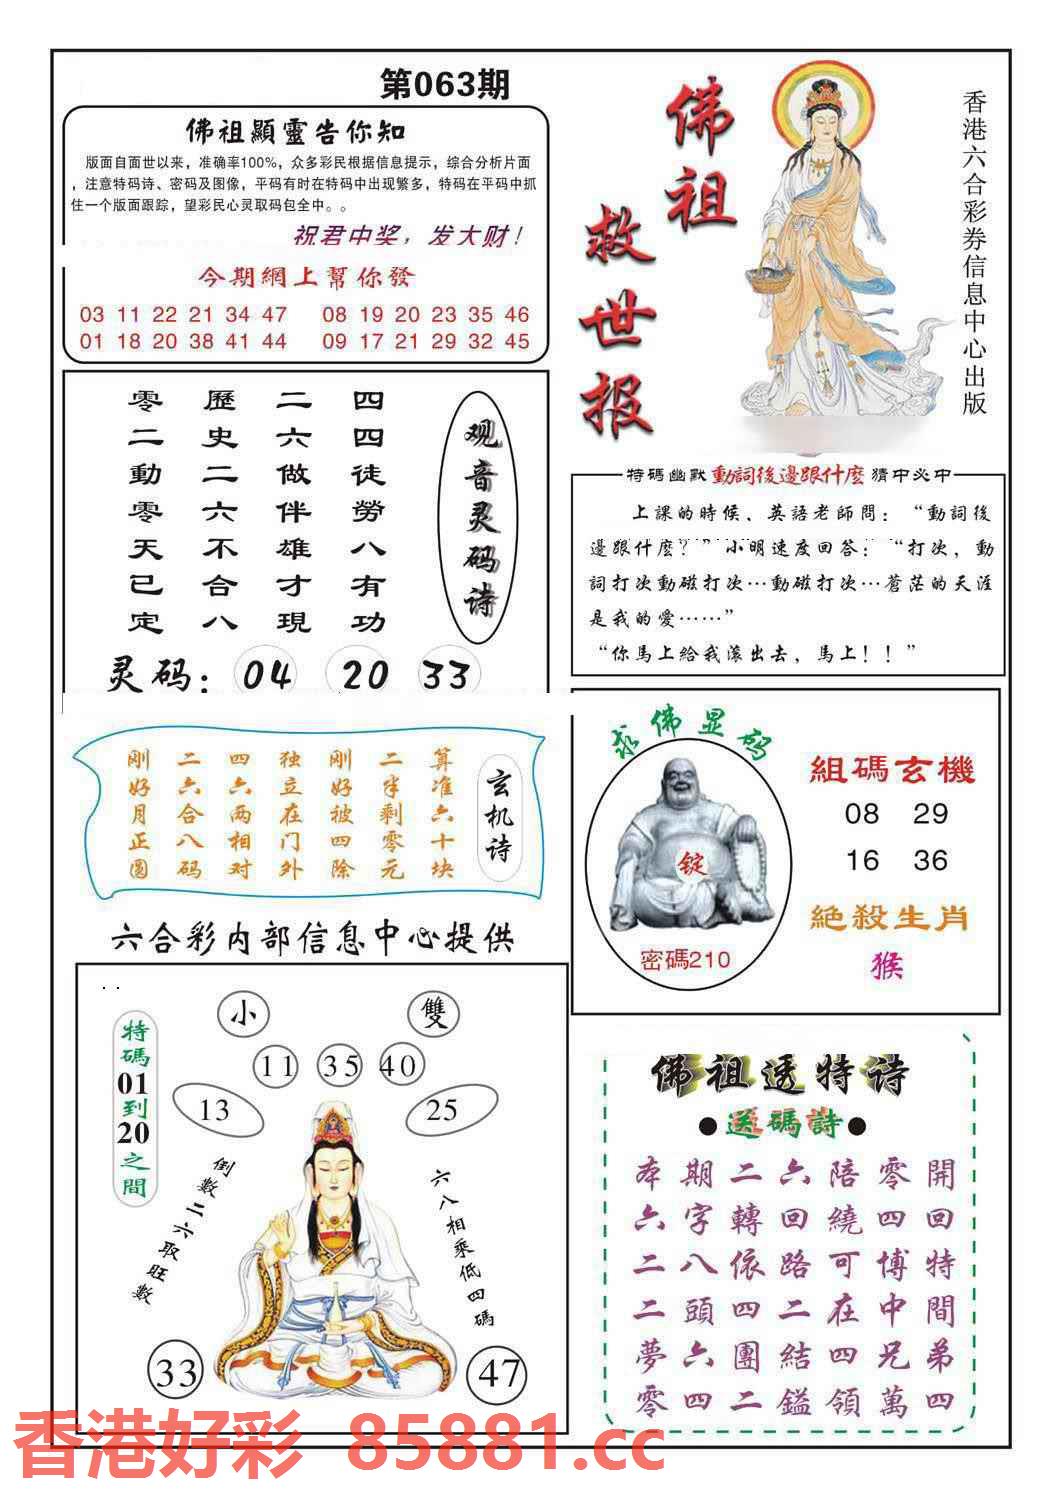 第063期
佛祖顯靈告你知
版面自面世以来，准确率100%，众多彩民根据信息提示，综合分析片面
，注意特码诗、密码及图像，平码有时在特码中出现繁多，特码在平码中抓
住一个版面跟踪，望彩民心灵取码包全中。。
祝君中奖，发大财！
今期網上幫你發
03 11 22 21 34 47 08 19 20 23 35 46
01 18 20 38 41 44 09 17 21 29 32 45
佛祖
救世报
香港六合彩券信息中心出版
零歷二四
二史六四
動二做徒
零六伴勞
天不雄八
已合才有
定八現功
观音灵码诗
灵码：04 20 33
特碼幽默動詞後邊跟什麼猜中必中
上課的時候，英語老師問：“動詞後
邊跟什麼？”小明速度回答：“打次，動
詞打次動磁打次…動磁打次…蒼茫的天涯
是我的愛……”
“你馬上給我滾出去，馬上！！”
刚二四独刚二算
好六六立好半准
月合两在被剩六
正八相门四零十
圆码对外除元块
玄机诗
求佛显码
錠
密碼210
組碼玄機
08 29
16 36
絕殺生肖
猴
六合彩内部信息中心提供
特碼01到20之間
小
雙
11
35
40
13
25
倒數二六取旺數
六八相乘低四碼
33
47
佛祖透特诗
●送碼詩●
本期二六陪零開
六字轉回繞四回
二八依路可博特
二頭四二在中間
夢六團結四兄弟
零四二鎰領萬四
香港好彩 85881.cc